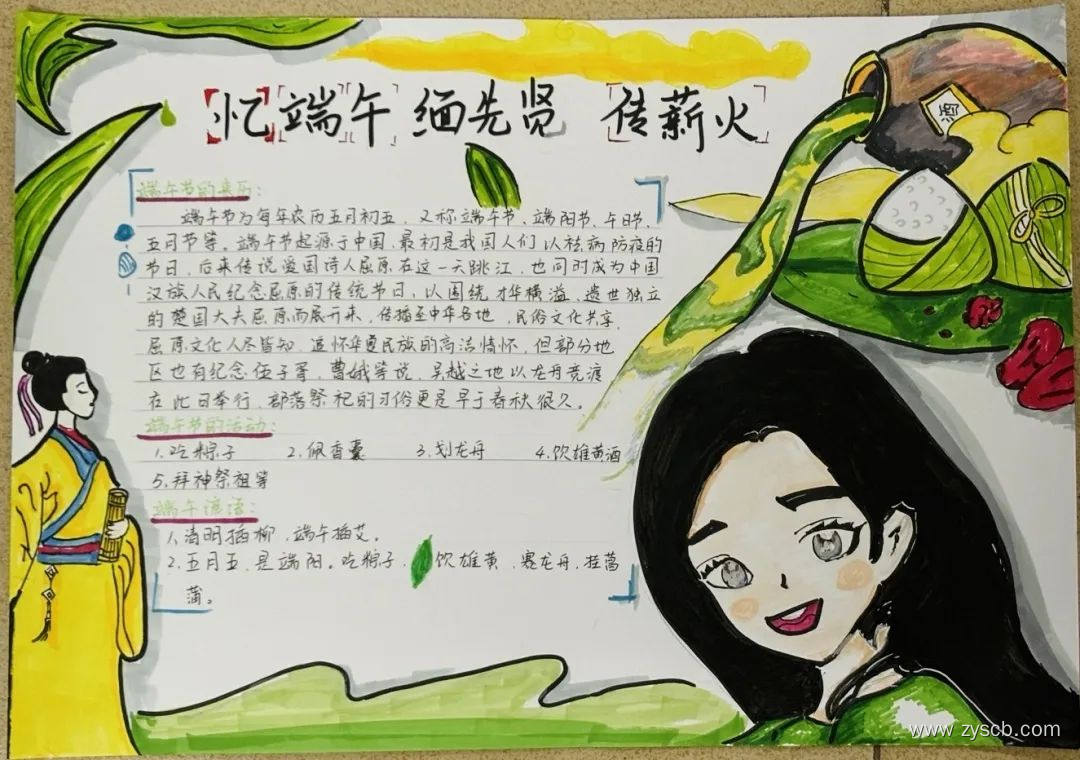 忆端午 缅先贤 传薪火
酒
端午节的来历:
端午节为每年农历五月初五，又称端午节、端阳节、午日节、
五月节等。端午节起源于中国，最初是我国人们以祛病防疫的
节日，后来传说爱国诗人屈原在这一天跳江，也同时成为中国
汉族人民纪念屈原的传统节日，以围绕才华横溢、遗世独立
的楚国大夫屈原而展开来，传播至中华各地，民俗文化共享，
屈原文化人尽皆知，追怀华夏民族的高洁情怀，但部分地
区也有纪念伍子胥、曹娥等说，吴越之地以龙舟竞渡
在此日举行，部落祭祀的习俗更是早于春秋很久。
端午节的活动:
1.吃粽子 2.佩香囊 3.划龙舟 4.饮雄黄酒
5.拜神祭祖等
端午谚语:
1.清明插柳，端午插艾。
2.五月五，是端阳。吃粽子，饮雄黄，赛龙舟，挂菖
蒲。
www.zyscb.com